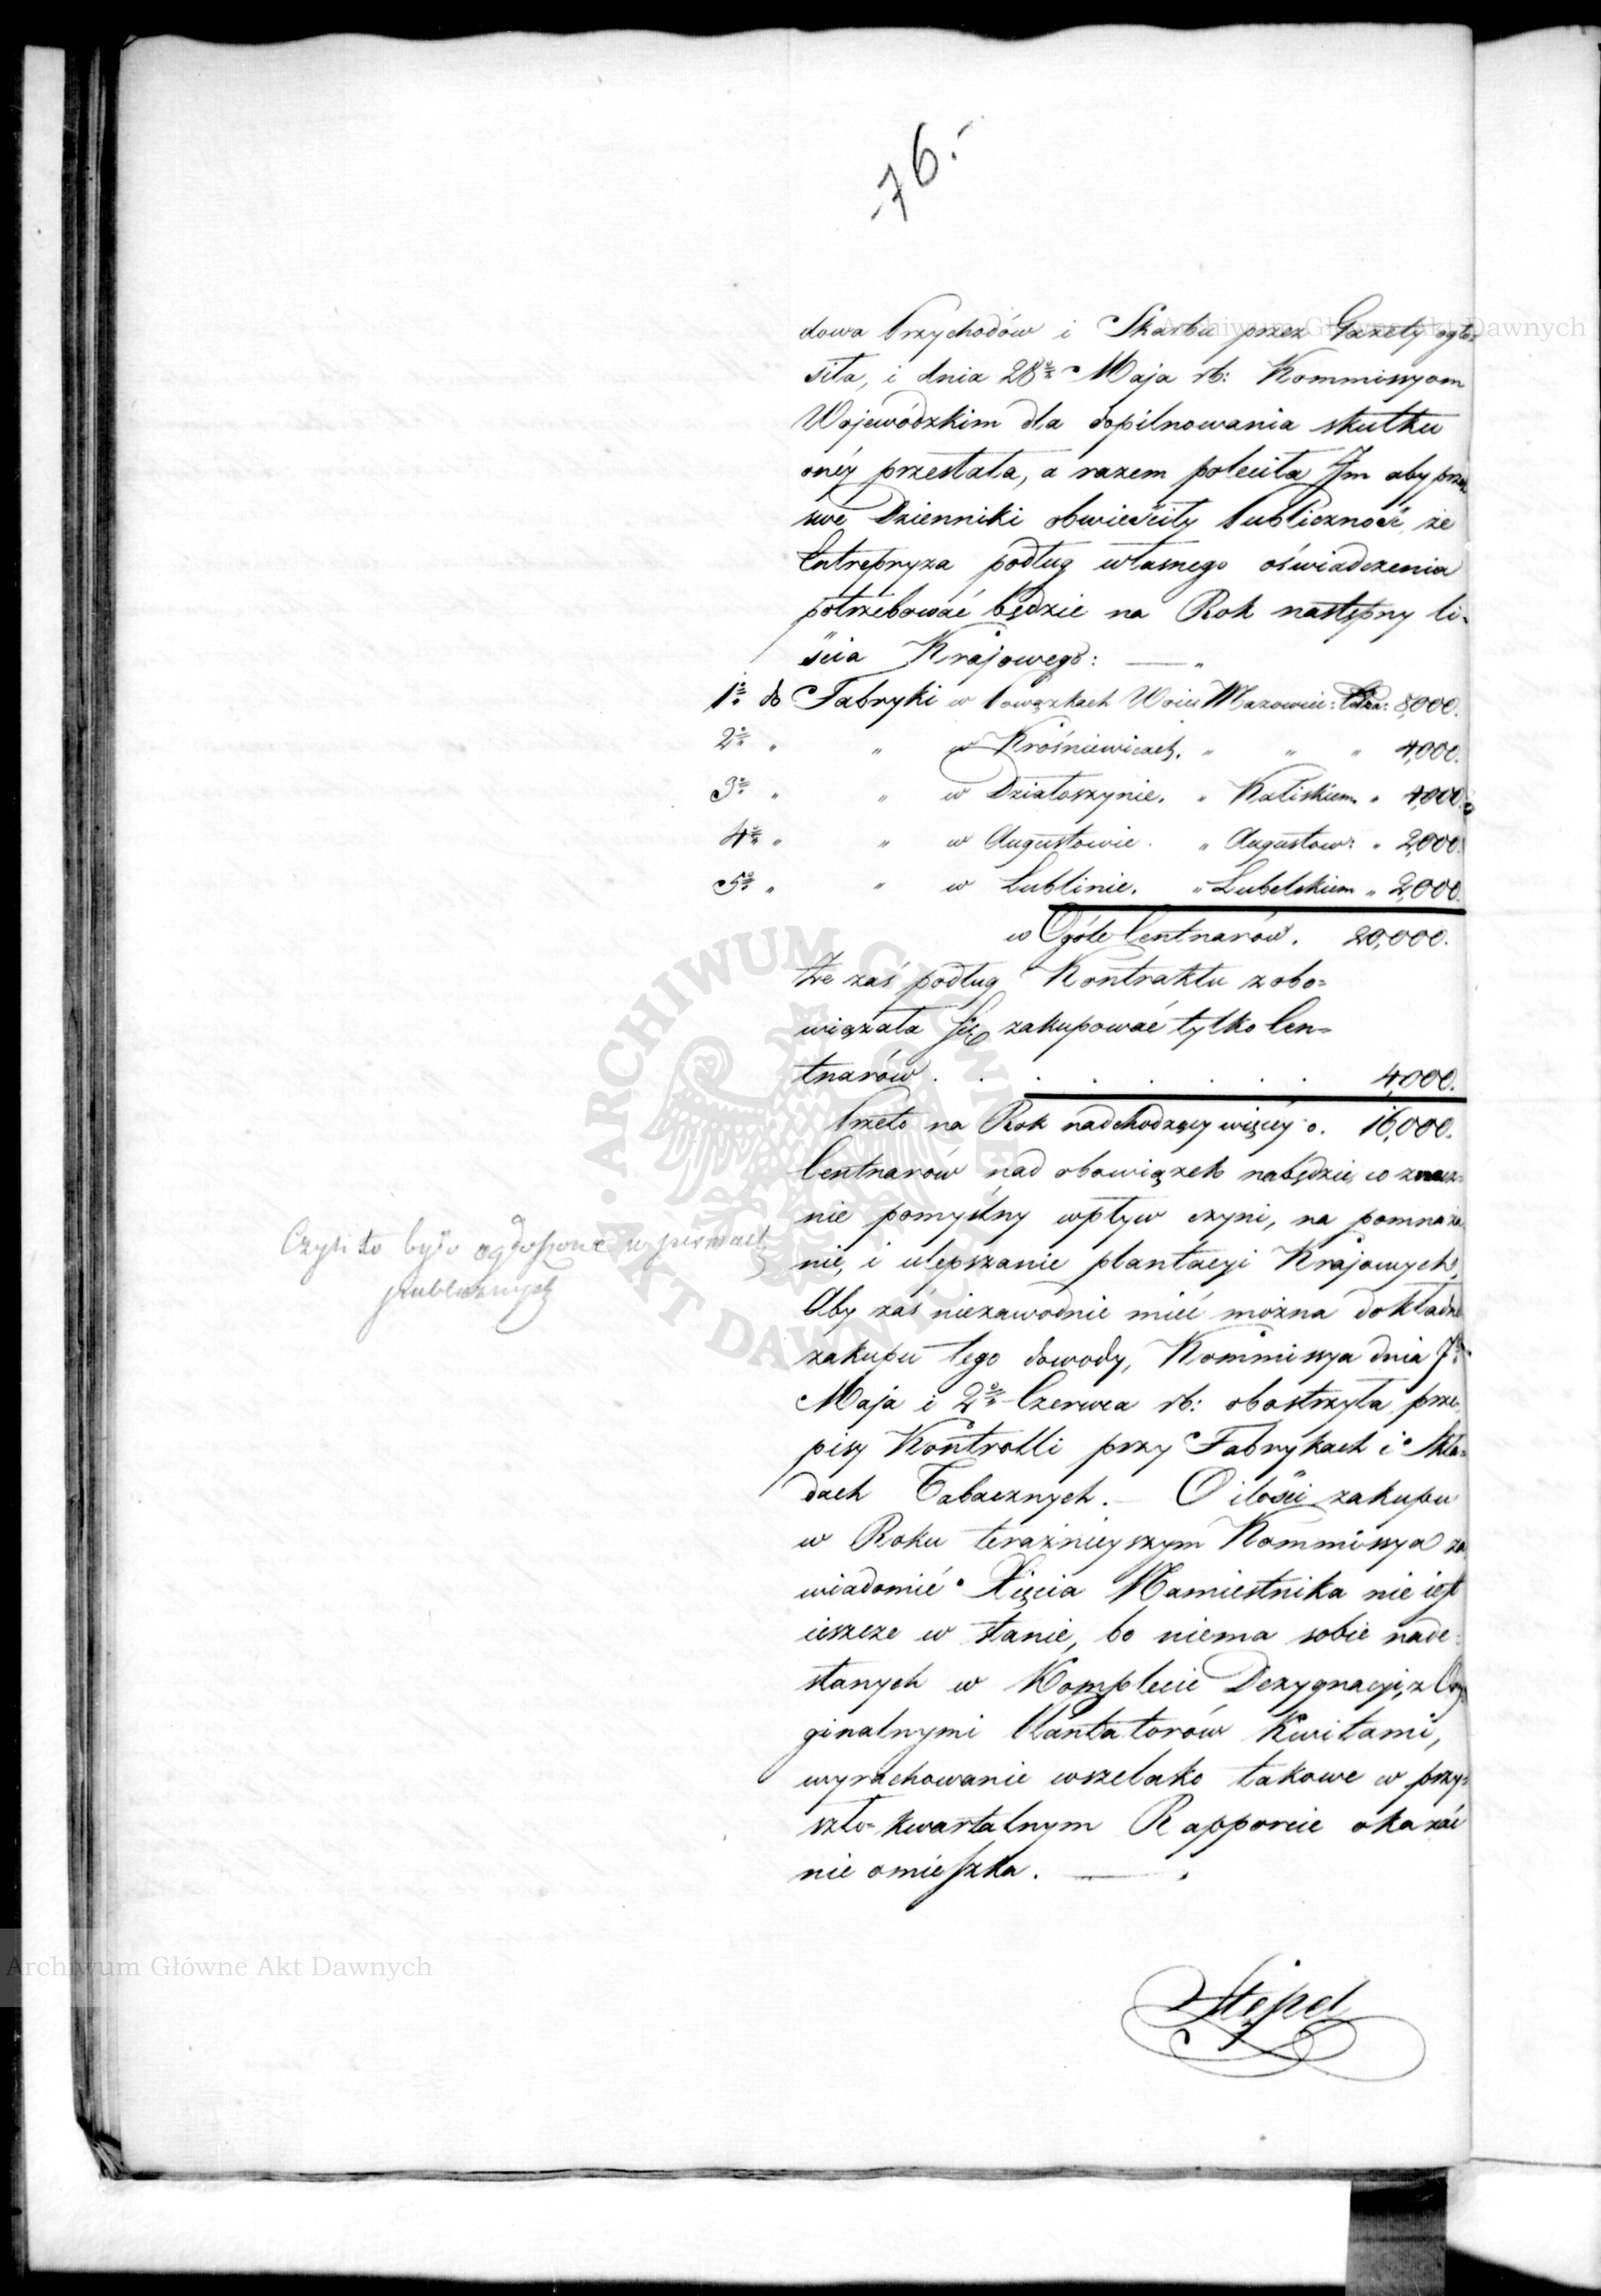 76.
dowa Przychodów i Skarbu przez Gazety ogło-
siła, i dnia 28º Maja rb: Kommissyom
Wojewódzkim dla dopilnowania skutku
onéy przesłała, a razem poleciła Im aby przez
swe Dzienniki obwieściły Publiczność, że
Entrepryza podług własnego oświadczenia
potrzebować będzie na Rok następny li-
ścia Krajowego:
1º do Fabryki w Powązkach Woiew Mazowiec: 8,000.
2º " " w Krośniewicach. " " " 4,000.
3º " " w Działoszynie. " Kaliskiem " 4,000.
4º " " w Augustowie. " Augustow: " 2,000.
5º " " w Lublinie. " Lubelskiem " 2,000.
w Ogóle Centnarów. 20,000.
Że zaś podług Kontraktu zobo=
wiązała się zakupować tylko Cen=
tnarów . . . . . . . 4,000.
Przeto na Rok nadchodzący więcéy o. 16,000.
Centnarów nad obowiązek nabędzie, co znacz=
nie pomyślny wpływ czyni, na pomnaża
nie, i ulepszanie plantacyi Krajowych.
Czyli to było ogłoszone w pismach
publicznych
Aby zaś niezawodnie mieć można dokładne
zakupu tego dowody, Kommissya dnia 7º
Maja i 2º Czerwca rb: obostrzyła prze-
pisy Kontrolli przy Fabrykach i Skła=
dach Tabacznych. — O ilości zakupu
w Roku teraźnieyszym Kommissya za
wiadomić Xięcia Namiestnika nie iest
ieszcze w stanie, bo niema sobie nade-
słanych w Komplecie Dezygnacyi, z Ory
ginalnymi Plantatorów Kwitami,
wyrachowanie wszelako takowe w przy=
szło-kwartalnym Rapporcie okazać
nie omieszka.
Archiwum Główne Akt Dawnych
Archiwum Główne Akt Dawnych
ARCHIWUM GŁÓWNE AKT DAWNYCH